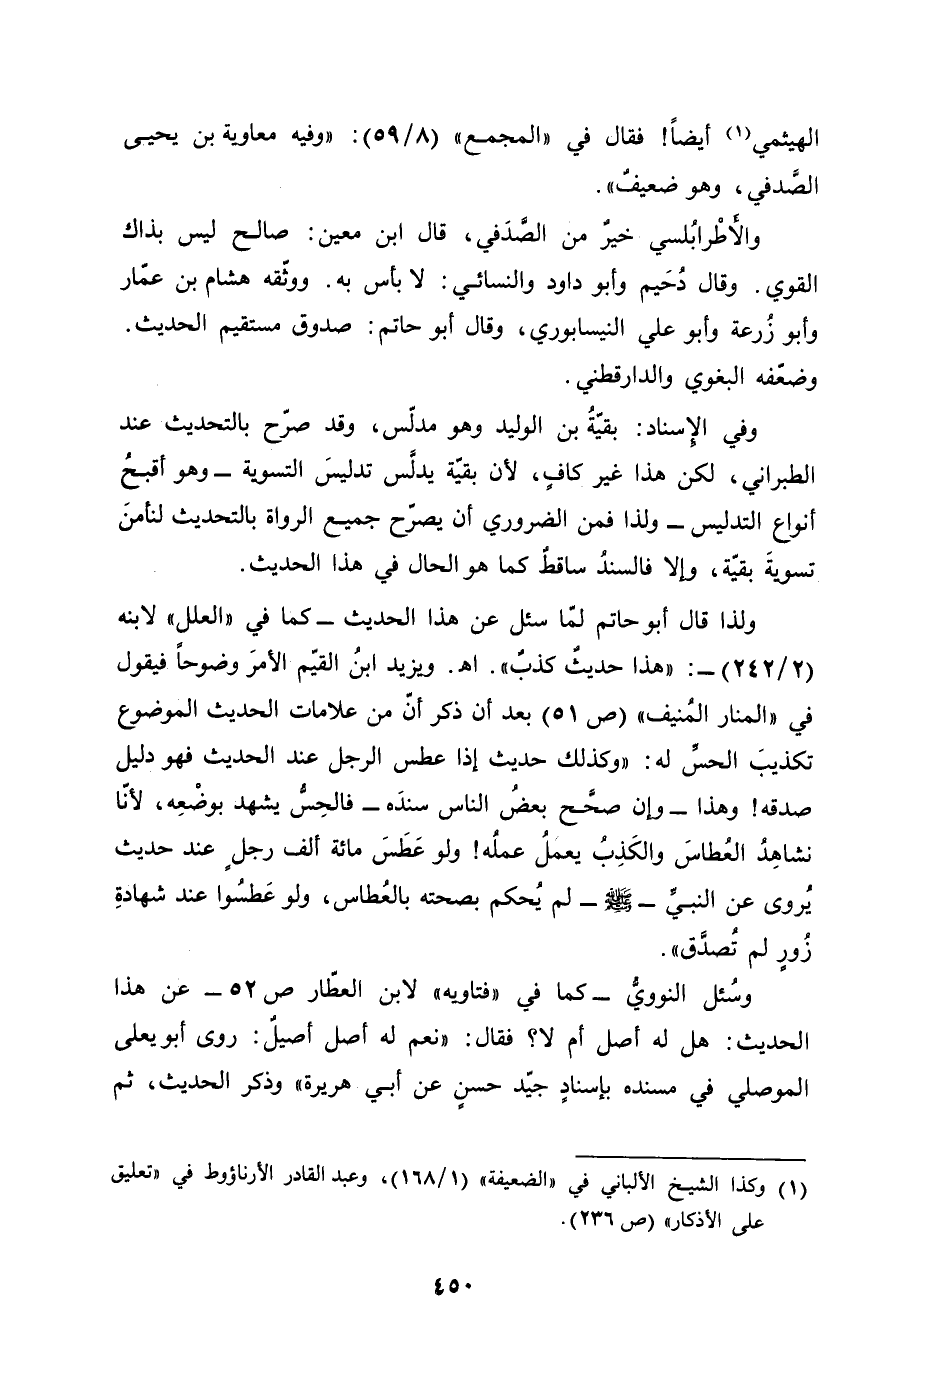 الهيثمي(١) أيضاً! فقال في «المجمع» (٥٩/٨): «وفيه معاوية بن يحيى
الصَّدفي، وهو ضعيفٌ».
والأَطْرابُلسي خيرٌ من الصَّدَفي، قال ابن معين: صالح ليس بذاك
القوي. وقال دُحَيم وأبو داود والنسائي: لا بأس به. ووثّقه هشام بن عمّار
وأبو زُرعة وأبو علي النيسابوري، وقال أبو حاتم: صدوق مستقيم الحديث.
وضعّفه البغوي والدارقطني.
وفي الإِسناد: بقيّةُ بن الوليد وهو مدلّس، وقد صرّح بالتحديث عند
الطبراني، لكن هذا غير كافٍ، لأن بقيّة يدلَّس تدليسَ التسوية ــ وهو أقبحُ
أنواع التدليس ــ ولذا فمن الضروري أن يصرّح جميع الرواة بالتحديث لنأمنَ
تسويةَ بقيّة، وإلا فالسندُ ساقطٌ كما هو الحال في هذا الحديث.
ولذا قال أبو حاتم لمّا سئل عن هذا الحديث ــ كما في «العلل» لابنه
(٢٤٢/٢) ــ: «هذا حديثٌ كذبٌ». اهـ. ويزيد ابنُ القيّم الأمرَ وضوحاً فيقول
في «المنار المُنيف» (ص ٥١) بعد أن ذكر أنّ من علامات الحديث الموضوع
تكذيبَ الحسِّ له: «وكذلك حديث إذا عطس الرجل عند الحديث فهو دليل
صدقه! وهذا ــ وإن صحَّح بعضُ الناس سندَه ــ فالحِسُّ يشهد بوضْعِه، لأنّا
نشاهِدُ العُطاسَ والكَذِبُ يعملُ عملُه! ولو عَطَسَ مائة ألف رجلٍ عند حديث
يُروى عن النبيِّ ــ ﷺ ــ لم يُحكم بصحته بالعُطاس، ولو عَطسُوا عند شهادةِ
زُورٍ لم تُصدَّق».
وسُئل النوويُّ ــ كما في «فتاويه» لابن العطّار ص ٥٢ ــ عن هذا
الحديث: هل له أصل أم لا؟ فقال: «نعم له أصل أصيلٌ: روى أبو يعلى
الموصلي في مسنده بإسنادٍ جيّد حسنٍ عن أبي هريرة» وذكر الحديث، ثم
(١) وكذا الشيخ الألباني في «الضعيفة» (١٦٨/١)، وعبد القادر الأرناؤوط في «تعليق
على الأذكار» (ص ٢٣٦).
٤٥٠